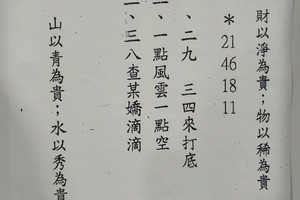 財以淨為貴；物以稀為貴
*
21
46
18
11
、二九 三四來打底
、一點風雲一點空
、三八查某嬌滴滴
山以青為貴；水以秀為貴